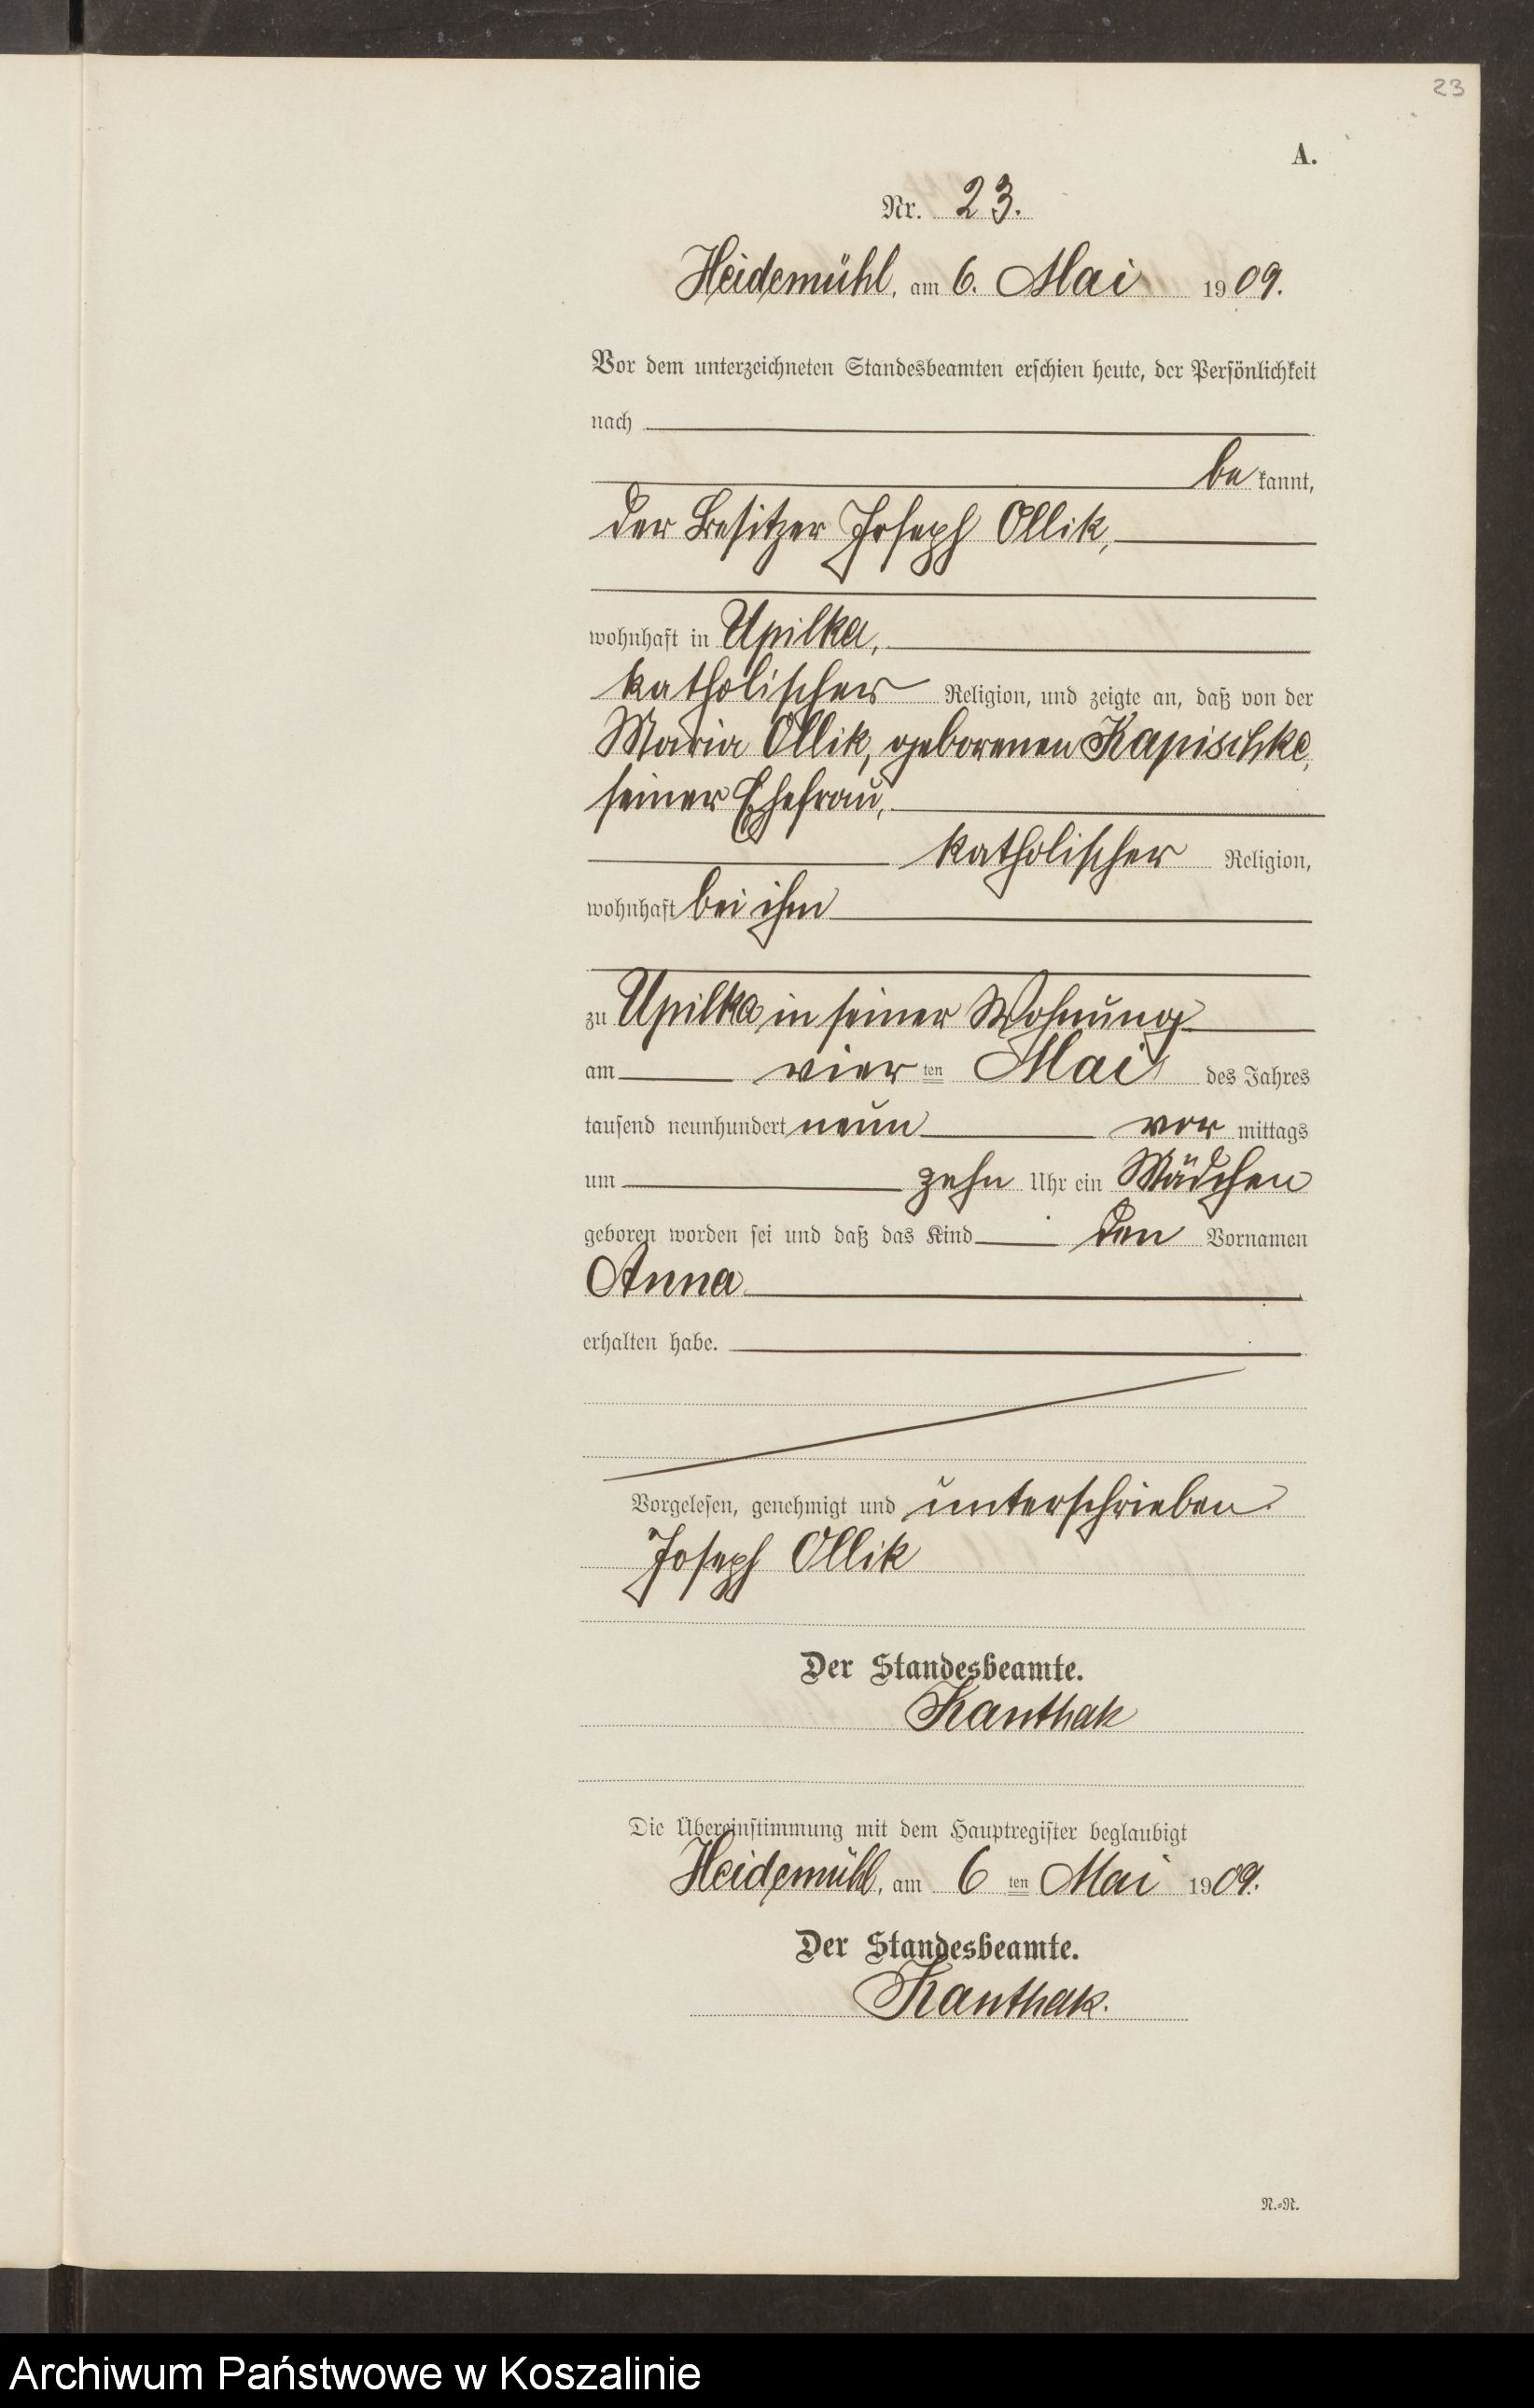 23
A.
Nr. 23.
Heidemühl, am 6. Mai 1909.
Vor dem unterzeichneten Standesbeamten erschien heute, der Persönlichkeit
nach
bekannt,
der Besitzer Joseph Ollik,
wohnhaft in Upilka,
katholischer Religion, und zeigte an, daß von der
Maria Ollik, geborenen Kapischke,
seiner Ehefrau,
katholischer Religion,
wohnhaft bei ihm
zu Upilka in seiner Wohnung
am vierten Mai des Jahres
tausend neunhundert neun vormittags
um zehn Uhr ein Mädchen
geboren worden sei und daß das Kind den Vornamen
Anna
erhalten habe.
Vorgelesen, genehmigt und unterschrieben
Joseph Ollik
Der Standesbeamte.
Kanthak
Die Übereinstimmung mit dem Hauptregister beglaubigt
Heidemühl, am 6ten Mai 1909.
Der Standesbeamte.
Kanthak.
N.=R.
Archiwum Państwowe w Koszalinie